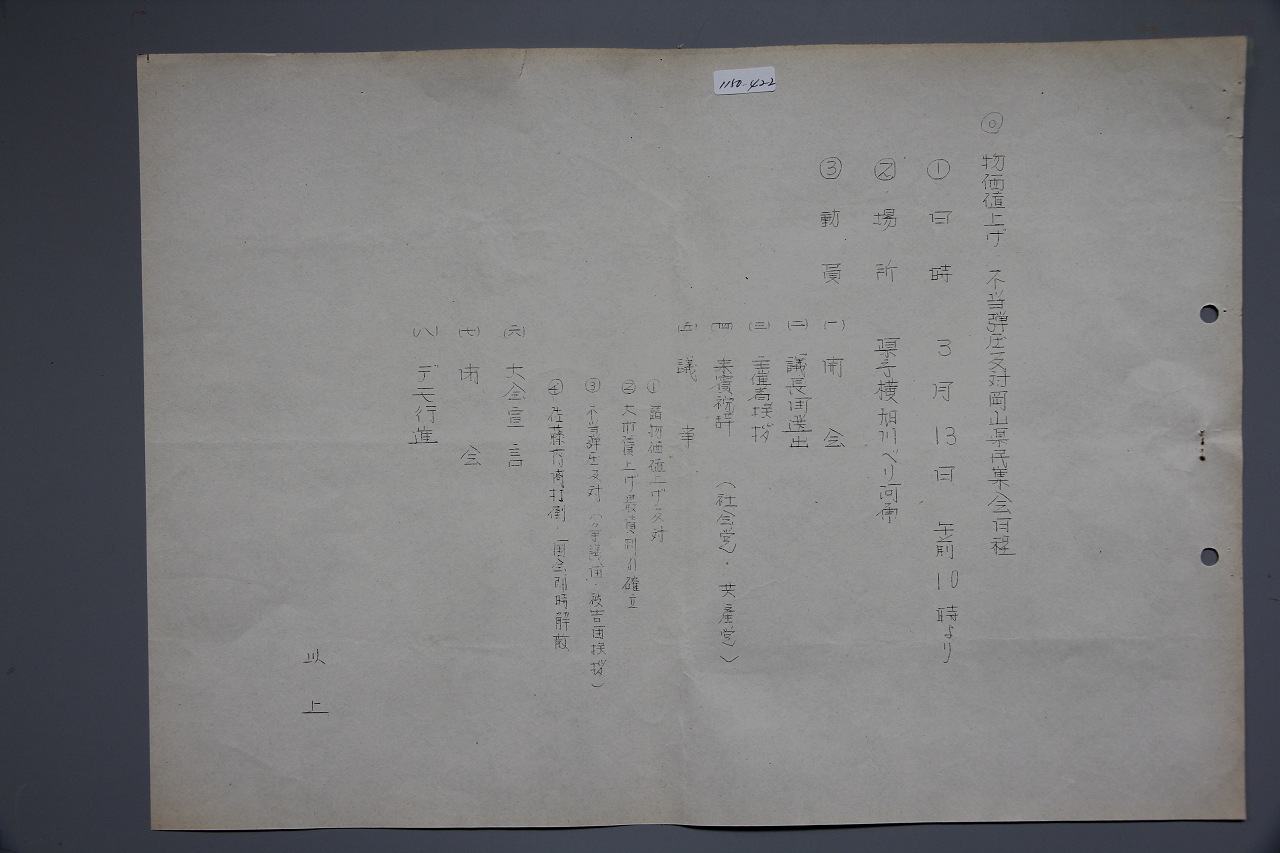 1150-422
◎ 物価値上げ 不当弾圧反対岡山県民集会日程
① 日時 3月13日 午前10時より
② 場所 県庁横旭川べり河原
③ 動員
(一) 開会
(二) 議長団選出
(三) 主催者挨拶
(四) 来賓祝辞 (社会党・共産党)
(五) 議事
① 諸物価値上げ反対
② 大巾賃上げ最賃制の確立
③ 不当弾圧反対(争議団・被告団挨拶)
④ 佐藤内閣打倒・国会即時解散
(六) 大会宣言
(七) 閉会
(八) デモ行進
以上